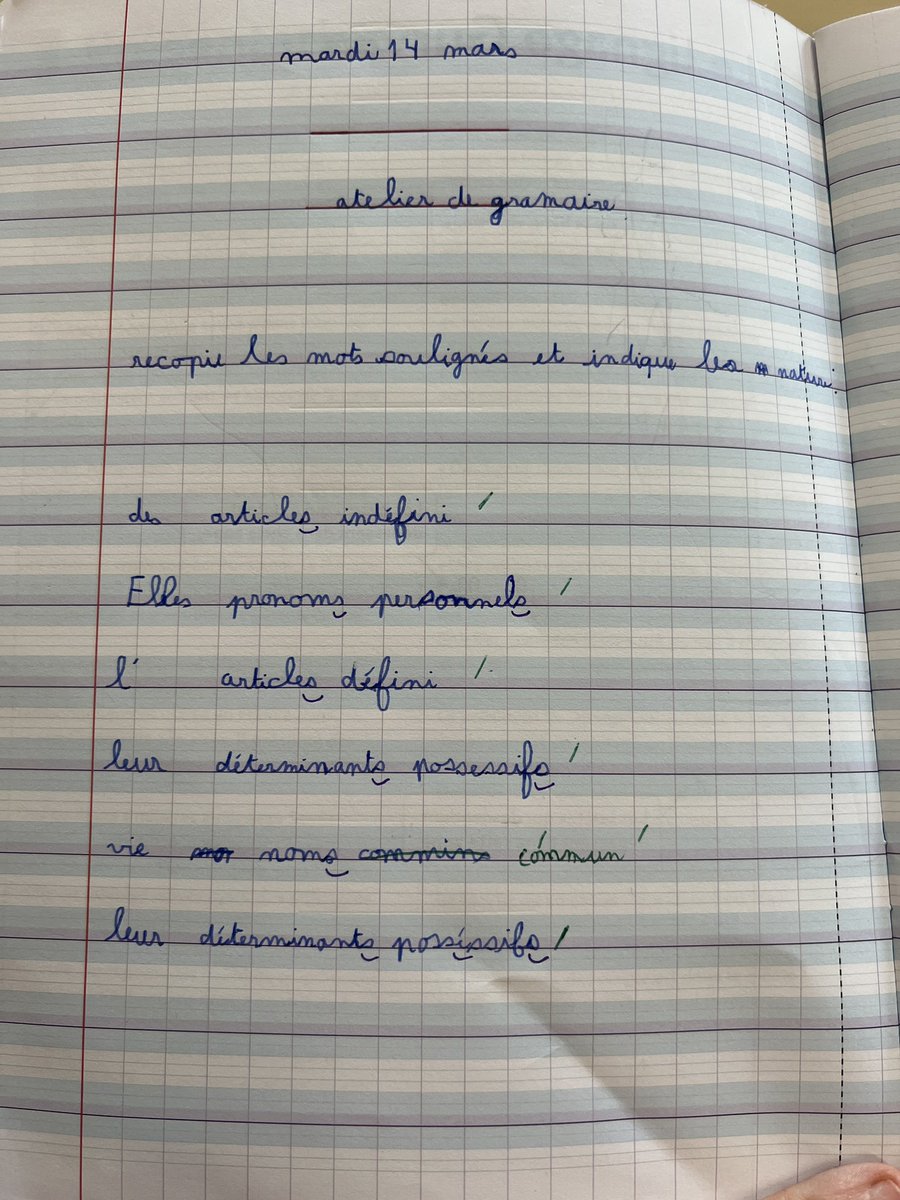 mardi 14 mars
atelier de gramaire
recopie les mots soulignés et indique les nature.
des articles indéfini
Elles pronoms personnels
l' articles défini
leur déterminants possessifs
vie noms commins commun
leur déterminants possissifs